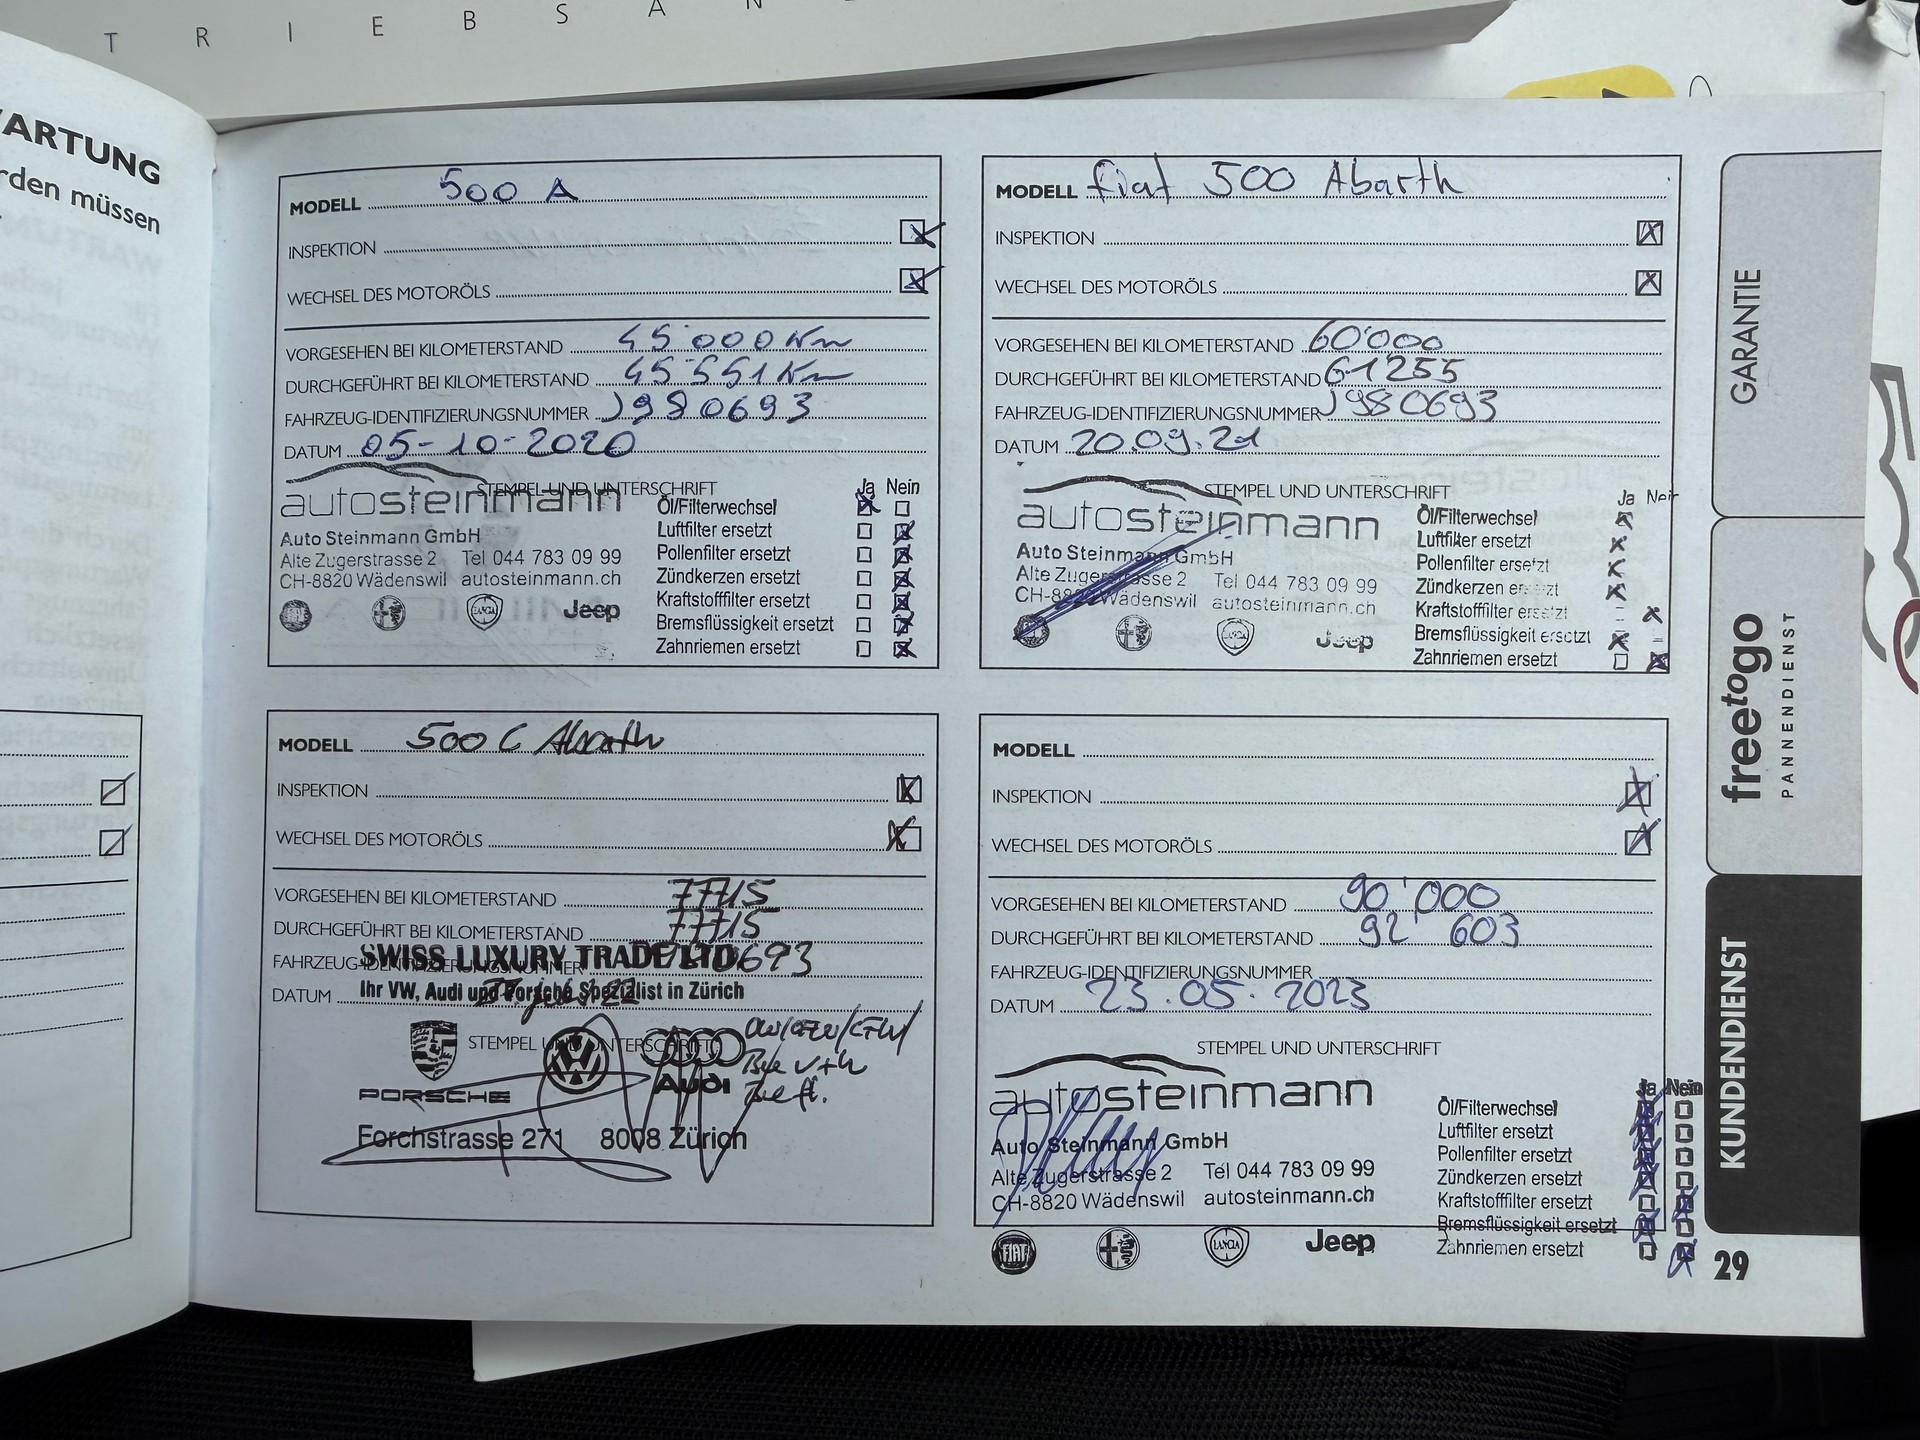 T R I E B S A N
WARTUNG
rden müssen
MODELL 500 A
INSPEKTION
WECHSEL DES MOTORÖLS
VORGESEHEN BEI KILOMETERSTAND 45'000 Km
DURCHGEFÜHRT BEI KILOMETERSTAND 45'551 Km
FAHRZEUG-IDENTIFIZIERUNGSNUMMER J980693
DATUM 05-10-2020
STEMPEL UND UNTERSCHRIFT
autosteinmann
Auto Steinmann GmbH
Alte Zugerstrasse 2 Tel 044 783 09 99
CH-8820 Wädenswil autosteinmann.ch
LANCIA Jeep
Ja Nein
Öl/Filterwechsel
Luftfilter ersetzt
Pollenfilter ersetzt
Zündkerzen ersetzt
Kraftstofffilter ersetzt
Bremsflüssigkeit ersetzt
Zahnriemen ersetzt
MODELL fiat 500 Abarth
INSPEKTION
WECHSEL DES MOTORÖLS
VORGESEHEN BEI KILOMETERSTAND 60'000
DURCHGEFÜHRT BEI KILOMETERSTAND 61255
FAHRZEUG-IDENTIFIZIERUNGSNUMMER J980693
DATUM 20.09.21
STEMPEL UND UNTERSCHRIFT
autosteinmann
Auto Steinmann GmbH
Alte Zugerstrasse 2 Tel 044 783 09 99
CH-8820 Wädenswil autosteinmann.ch
LANCIA Jeep
Ja Nein
Öl/Filterwechsel
Luftfilter ersetzt
Pollenfilter ersetzt
Zündkerzen ersetzt
Kraftstofffilter ersetzt
Bremsflüssigkeit ersetzt
Zahnriemen ersetzt
MODELL 500 C Abarth
INSPEKTION
WECHSEL DES MOTORÖLS
VORGESEHEN BEI KILOMETERSTAND 77715
DURCHGEFÜHRT BEI KILOMETERSTAND 77715
FAHRZEUG-IDENTIFIZIERUNGSNUMMER
SWISS LUXURY TRADE LTD.
DATUM
Ihr VW, Audi und Porsche Spezialist in Zürich
STEMPEL UND UNTERSCHRIFT
PORSCHE Audi
Forchstrasse 271 8008 Zürich
MODELL
INSPEKTION
WECHSEL DES MOTORÖLS
VORGESEHEN BEI KILOMETERSTAND 90'000
DURCHGEFÜHRT BEI KILOMETERSTAND 92'603
FAHRZEUG-IDENTIFIZIERUNGSNUMMER
DATUM 23.05.2023
STEMPEL UND UNTERSCHRIFT
autosteinmann
Auto Steinmann GmbH
Alte Zugerstrasse 2 Tel 044 783 09 99
CH-8820 Wädenswil autosteinmann.ch
FIAT LANCIA Jeep
Ja Nein
Öl/Filterwechsel
Luftfilter ersetzt
Pollenfilter ersetzt
Zündkerzen ersetzt
Kraftstofffilter ersetzt
Bremsflüssigkeit ersetzt
Zahnriemen ersetzt
GARANTIE
freetogo
PANNENDIENST
KUNDENDIENST
29